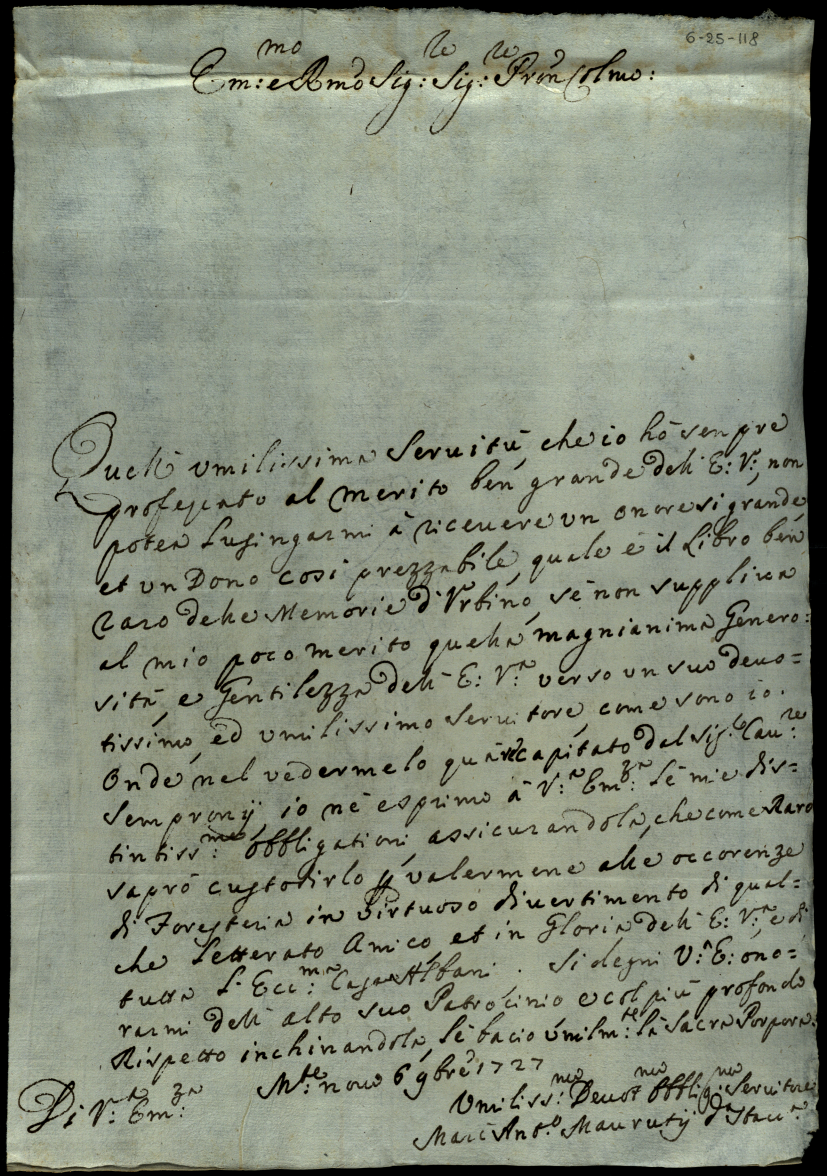 6-25-118
Em:mo e Rmo Sig:re Sig:re Pron Colmo:
Quell' vmilissima Seruitù, che io hò senpre
professato al merito ben grande dell' E: V:, non
potea Lusingarmi à riceuere vn onore si grande,
et vn Dono così prezzabile, quale è il Libro ben
raro delle Memorie d'Vrbino, sè non suppliua
al mio poco merito quella magnianima Genero:
sità, e Gentilezza dell' E: V:a verso un suo deuo=
tissimo, ed vmilissimo Seruitore, come sono io.
Onde nel vedermelo quà recapitato dal Sig:e Cau:re
Sempronij, io nè esprimo à V:a Em:za Lè mie dis=
tintiss:me obbligationi, assicurandola, che come Raro
saprò custodirlo p valermene alle occorenze
di Foresteria in Virtuoso diuertimento di qual=
che Letterato Amico, et in Gloria dell' E: V:a, e di
tutta L' Ecc:ma Casa Albani. Si degni V:a E: ono=
rarmi dell' alto suo Patrocinio e col più profondo
Rispetto inchinandola, Lè bacio vmilm:te la Sacra Porpora.
M:te nouo 6 9bre 1727
Di V:a Em:za
Vmiliss:mo Deuot:mo Obblig:mo Seruitore
Marc' Ant:o Maurutij